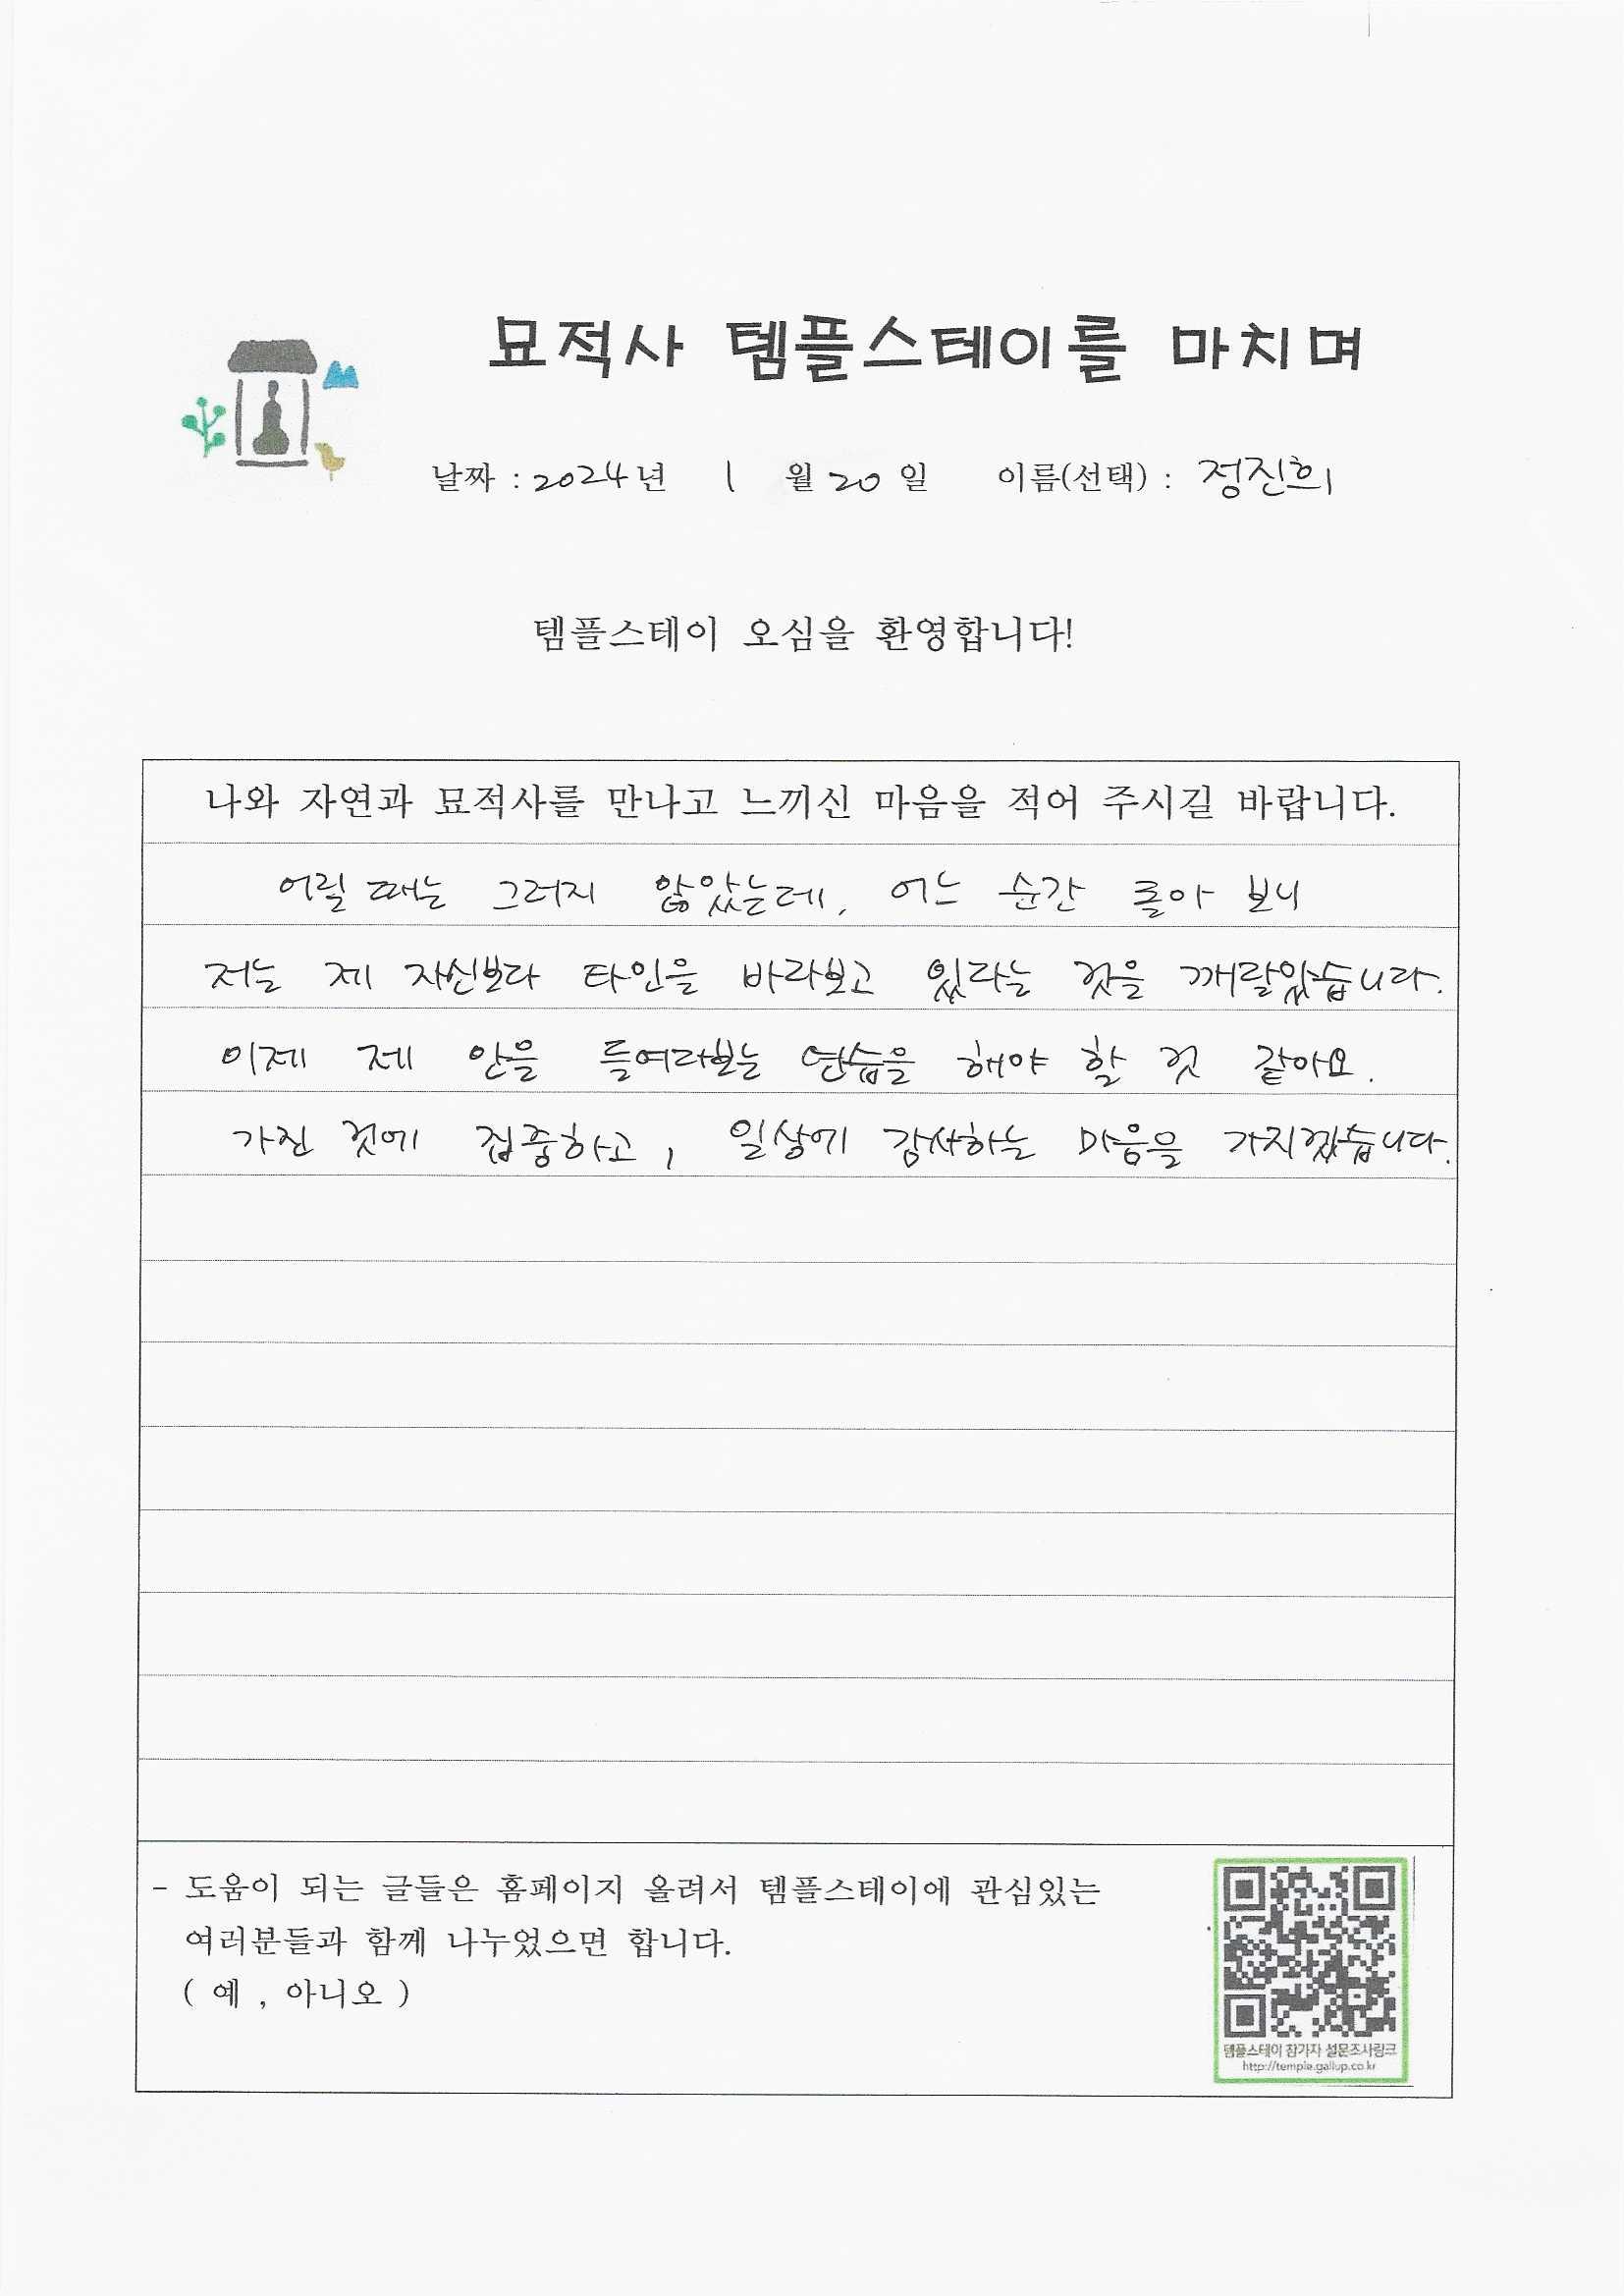 묘적사 템플스테이를 마치며
날짜 : 2024년 1 월 20 일 이름(선택) : 정진희
템플스테이 오심을 환영합니다!
나와 자연과 묘적사를 만나고 느끼신 마음을 적어 주시길 바랍니다.
어릴 때는 그러지 않았는데, 어느 순간 돌아 보니
저는 제 자신보다 타인을 바라보고 있다는 것을 깨달았습니다.
이제 제 안을 들여다보는 연습을 해야 할 것 같아요.
가진 것에 집중하고, 일상에 감사하는 마음을 가지겠습니다.
- 도움이 되는 글들은 홈페이지 올려서 템플스테이에 관심있는
여러분들과 함께 나누었으면 합니다.
( 예 , 아니오 )
템플스테이 참가자 설문조사링크
http://temple.gallup.co.kr